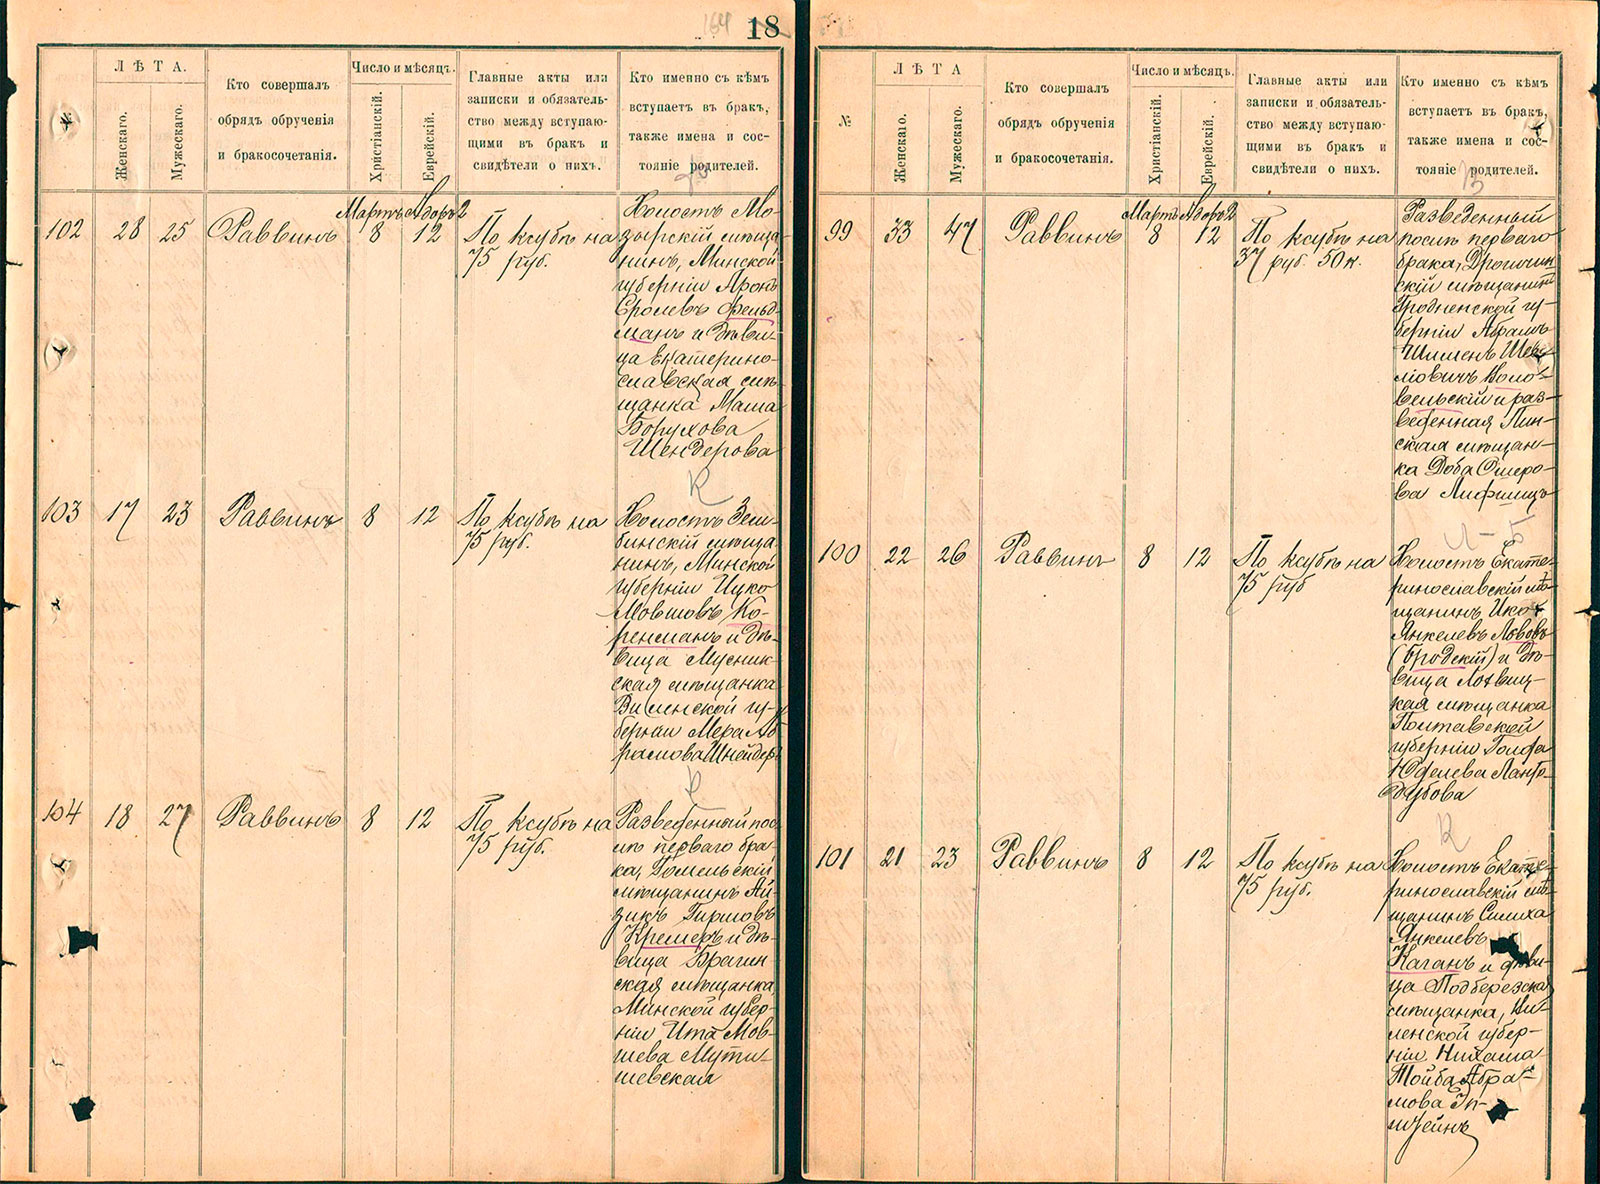 164 18
ЛѢТА.
Женскаго.
Мужескаго.
Кто совершалъ
обрядъ обрученія
и бракосочетанія.
Число и мѣсяцъ.
Христіанскій.
Еврейскій.
Главные акты или
записки и обязатель-
ство между вступаю-
щими въ бракъ и
свидѣтели о нихъ.
Кто именно съ кѣмъ
вступаетъ въ бракъ,
также имена и сос-
тояніе родителей.
102 28 25 Раввинъ
Мартъ 8
Адоръ 2 12
По ксубѣ на
75 руб.
Холостъ Мо-
зырскій мѣща-
нинъ, Минской
губерніи Аронъ
Сролевъ Фельд-
манъ и дѣви-
ца Екатерино-
славская мѣ-
щанка Маша
Борухова
Шендерова
К
103 17 23 Раввинъ 8 12
По ксубѣ на
75 руб.
Холостъ Зем-
бинскій мѣща-
нинъ, Минской
губерніи Ицко
Мовшовъ Ко-
ренманъ и дѣ-
вица Мусник-
ская мѣщанка
Виленской гу-
берніи Мера Аб-
рамова Шнейдеръ
104 18 27 Раввинъ 8 12
По ксубѣ на
75 руб.
Разведенный пос-
лѣ перваго бра-
ка, Гомельскій
мѣщанинъ Ай-
зикъ Гиршовъ
Кремеръ и дѣ-
вица Брагин-
ская мѣщанка,
Минской губер-
ніи Ита Мов-
шева Мути-
шевская
№
ЛѢТА
Женскаго.
Мужескаго.
Кто совершалъ
обрядъ обрученія
и бракосочетанія.
Число и мѣсяцъ.
Христіанскій.
Еврейскій.
Главные акты или
записки и обязатель-
ство между вступаю-
щими въ бракъ и
свидѣтели о нихъ.
Кто именно съ кѣмъ
вступаетъ въ бракъ,
также имена и сос-
тояніе родителей.
99 33 47 Раввинъ
Мартъ 8
Адоръ 2 12
По ксубѣ на
37 руб. 50 к.
Разведенный
послѣ перваго
брака, Дрогичин-
скій мѣщанинъ
Гродненской гу-
берніи Абрамъ
Шлиоменъ
Воло-
вельскій и раз-
веденная Пин-
ская мѣщан-
ка Доба Ошеро-
ва Лифшицъ
Л-Б
100 22 26 Раввинъ 8 12
По ксубѣ на
75 руб
Холостъ Екате-
ринославскій мѣ-
щанинъ Ицко
Янкелевъ Львовъ
(Бродскій) и дѣ-
вица Лохвиц-
кая мѣщанка
Полтавской
губерніи Голфа
Юделева Ланго-
дубова
К
101 21 23 Раввинъ 8 12
По ксубѣ на
75 руб.
Холостъ Екате-
ринославскій мѣ-
щанинъ Симха
Янкелевъ
Каганъ и дѣви-
ца Подберезская
мѣщанка, Ви-
ленской губер-
ніи Нихама
Тойба Абра-
мова Эп-
штейнъ